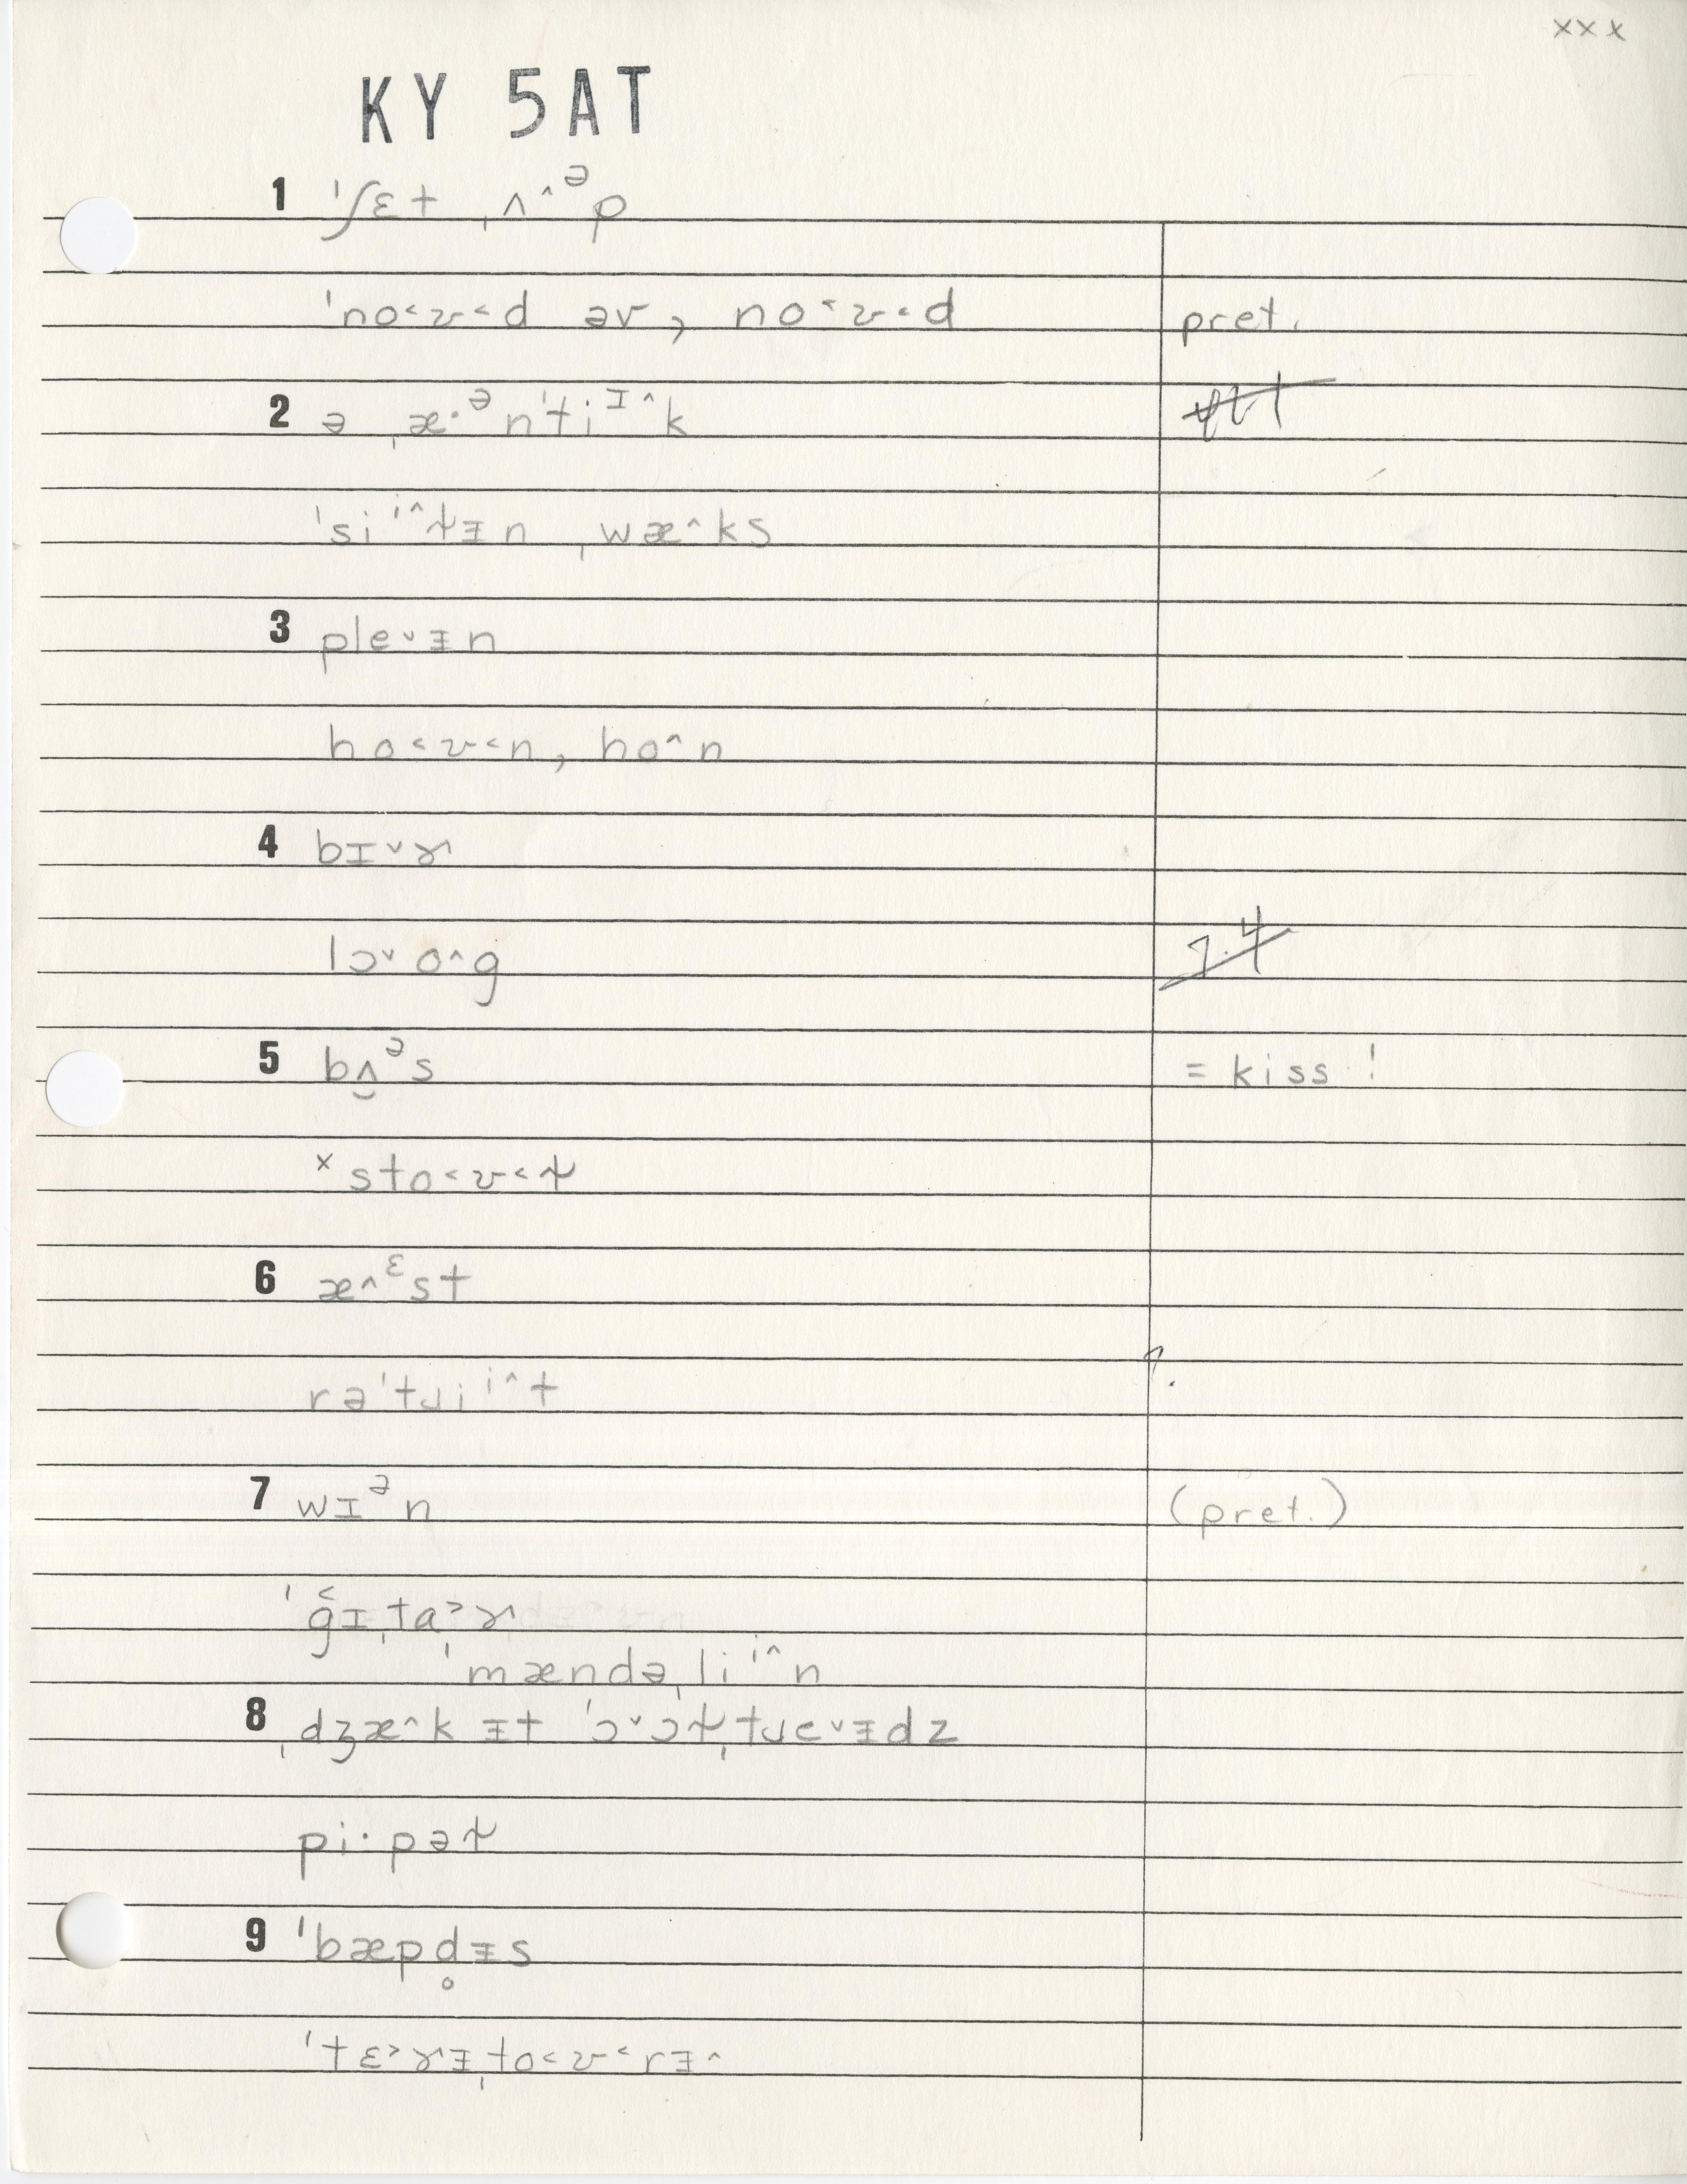 xxx
KY 5AT
1 ˈʃɛt ˌʌ^ᵊp
ˈno<ʊ<d əv, no<ʊ<d pret.
2 ə ˌæ·ᵊnˈtiᶦ^k
ˈsiⁱ^t̬ɪ̵n ˌwæ^ks
3 ple˅ɪ̵n
ho<ʊ<n, ho^n
4 bɪ˅ɚ
lɔ˅o^g
5 bʌ̮ᵊs = kiss !
ˣsto<ʊ<t̬
6 æ^ᵋst
rəˈtɹiⁱ^t
7 wɪᵊn (pret.)
ˈg̑ɪˌta>ɚ
ˈmændəˌliⁱ^n
8 ˌdʒæ^k ɪ̵t ˈɔ˅ɔt̬ˌtɹe˅ɪ̵dz
pi·pət̬
9 ˈbæpd̥ɪ̵s
ˈtɛ>ɚɪ̵ˌto<ʊ<rɪ̵^